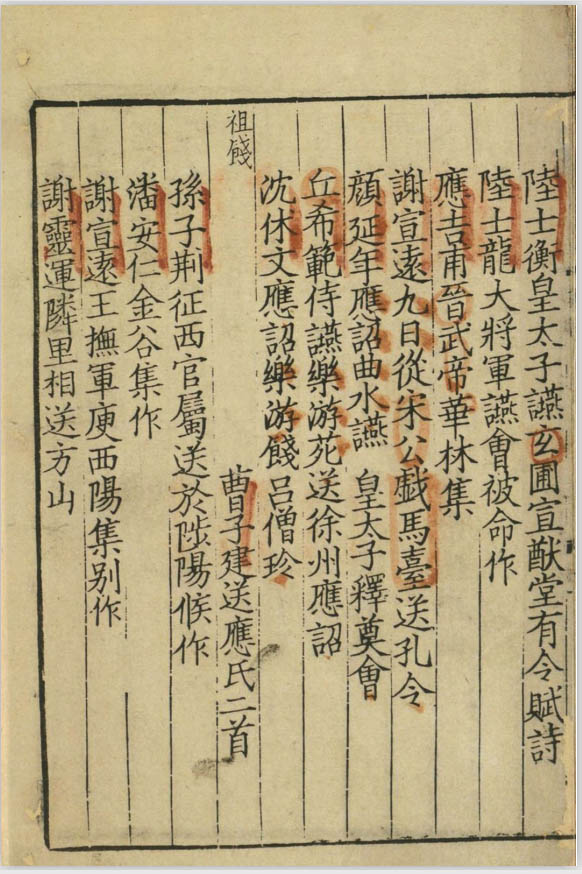 陸士衡皇太子讌玄圃宣猷堂有令賦詩
陸士龍大將軍讌會被命作
應吉甫晉武帝華林集
謝宣遠九日從宋公戯馬臺送孔令
顔延年應詔曲水讌　皇太子釋奠會
丘希範侍讌樂游苑送徐州應詔
沈休文應詔樂游餞呂僧珍
祖餞　曹子建送應氏二首
孫子荆征西官屬送於陟陽候作
潘安仁金谷集作
謝宣遠王撫軍庾西陽集别作
謝靈運隣里相送方山